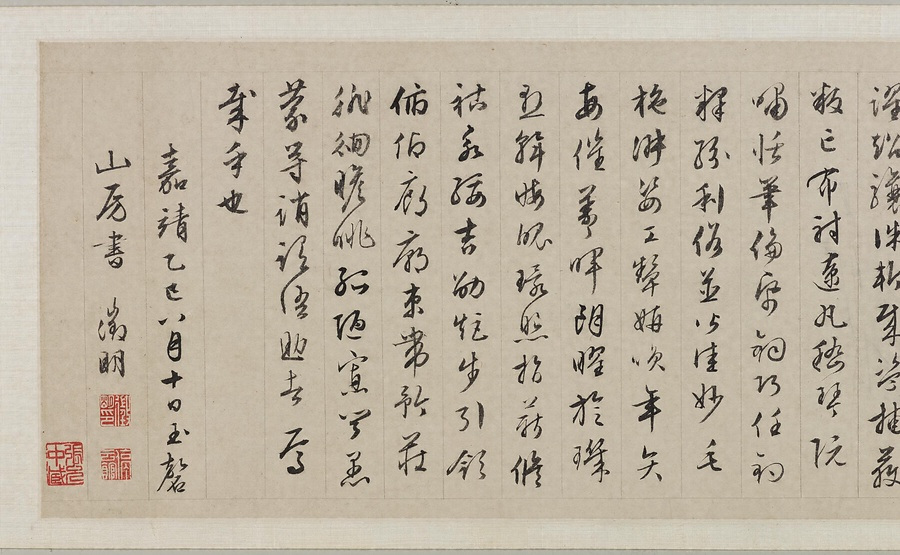 躍超驤誅斬賊盜捕獲
叛亡布射遼丸嵇琴阮
嘯恬筆倫紙鈞巧任釣
釋紛利俗並皆佳妙毛
施淑姿工顰妍笑年矢
每催羲暉朗曜旋璣
懸斡晦魄環照指薪修
祜永綏吉劭矩步引領
俯仰廊廟束帶矜莊
徘徊瞻眺孤陋寡聞愚
蒙等誚謂語助者焉
哉乎也
嘉靖乙巳八月十日玉磬
山房書 徵明